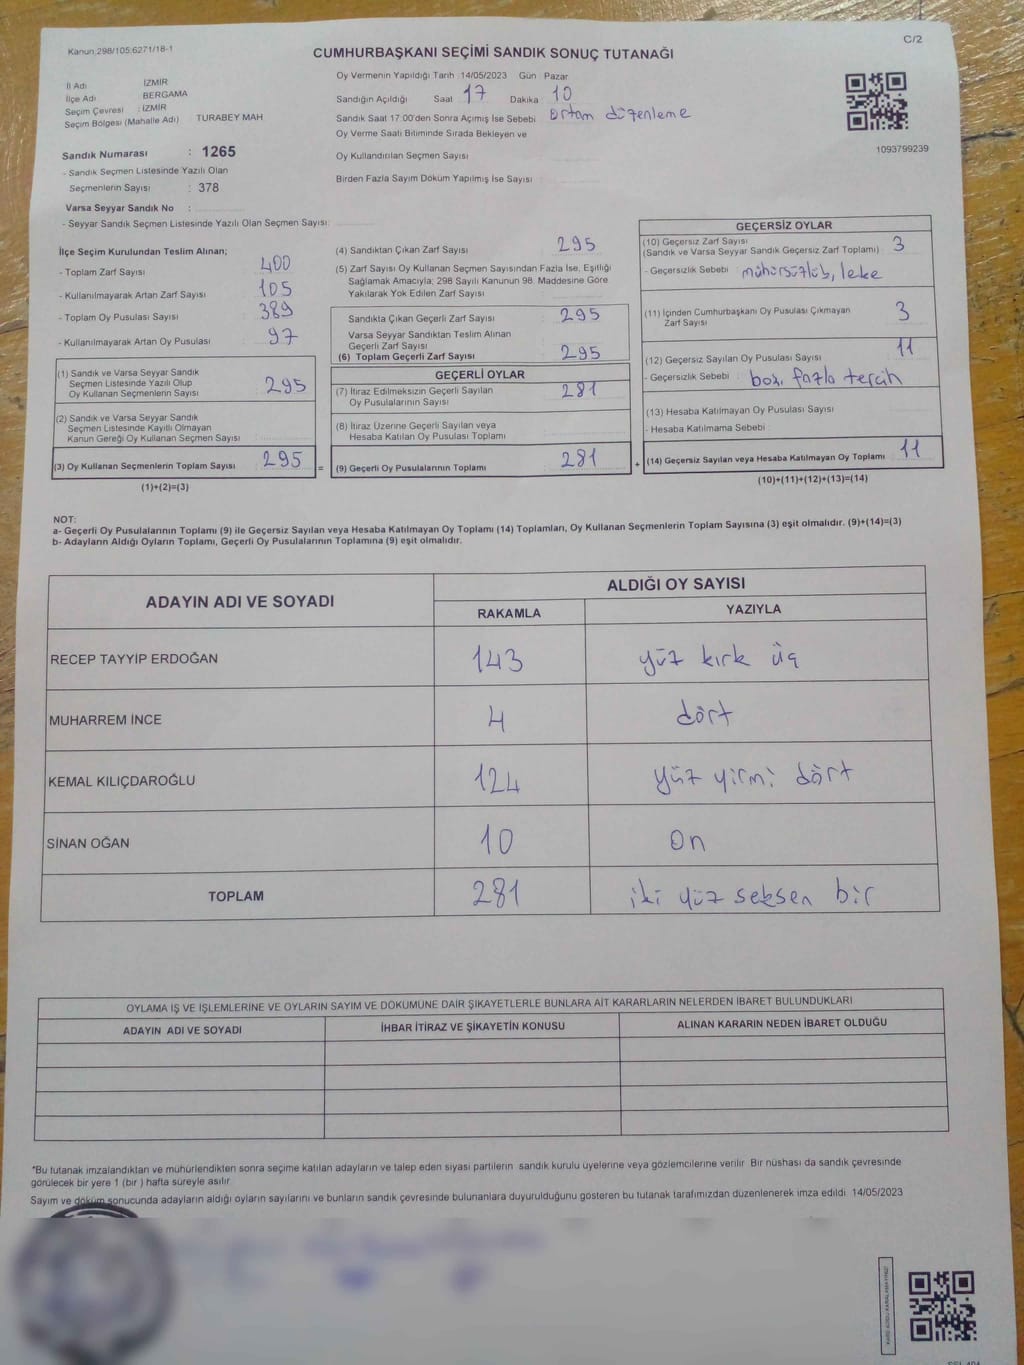 Kanun:298/105:6271/18-1
C/2
CUMHURBAŞKANI SEÇİMİ SANDIK SONUÇ TUTANAĞI
İl Adı İZMİR
İlçe Adı BERGAMA
Seçim Çevresi : İZMİR
Seçim Bölgesi (Mahalle Adı) TURABEY MAH
Sandık Numarası : 1265
- Sandık Seçmen Listesinde Yazılı Olan
Seçmenlerin Sayısı : 378
Varsa Seyyar Sandık No :
- Seyyar Sandık Seçmen Listesinde Yazılı Olan Seçmen Sayısı:
Oy Vermenin Yapıldığı Tarih :14/05/2023 Gün Pazar
Sandığın Açıldığı Saat 17 Dakika 10
Sandık Saat 17:00'den Sonra Açımış İse Sebebi Ortam düzenleme
Oy Verme Saati Bitiminde Sırada Bekleyen ve
Oy Kullandırılan Seçmen Sayısı
Birden Fazla Sayım Döküm Yapılmış İse Sayısı :
1093799239
İlçe Seçim Kurulundan Teslim Alınan;
- Toplam Zarf Sayısı 400
- Kullanılmayarak Artan Zarf Sayısı 105
- Toplam Oy Pusulası Sayısı 389
- Kullanılmayarak Artan Oy Pusulası 97
(1) Sandık ve Varsa Seyyar Sandık
Seçmen Listesinde Yazılı Olup
Oy Kullanan Seçmenlerin Sayısı 295
(2) Sandık ve Varsa Seyyar Sandık
Seçmen Listesinde Kayıtlı Olmayan
Kanun Gereği Oy Kullanan Seçmen Sayısı
(3) Oy Kullanan Seçmenlerin Toplam Sayısı 295 =
(1)+(2)=(3)
(4) Sandıktan Çıkan Zarf Sayısı 295
(5) Zarf Sayısı Oy Kullanan Seçmen Sayısından Fazla İse, Eşitliği
Sağlamak Amacıyla; 298 Sayılı Kanunun 98. Maddesine Göre
Yakılarak Yok Edilen Zarf Sayısı
Sandıkta Çıkan Geçerli Zarf Sayısı 295
Varsa Seyyar Sandıktan Teslim Alınan
Geçerli Zarf Sayısı
(6) Toplam Geçerli Zarf Sayısı 295
GEÇERLİ OYLAR
(7) İtiraz Edilmeksizin Geçerli Sayılan
Oy Pusulalarının Sayısı 281
(8) İtiraz Üzerine Geçerli Sayılan veya
Hesaba Katılan Oy Pusulası Toplamı
(9) Geçerli Oy Pusulalarının Toplamı 281 +
GEÇERSİZ OYLAR
(10) Geçersiz Zarf Sayısı
(Sandık ve Varsa Seyyar Sandık Geçersiz Zarf Toplamı) 3
- Geçersizlik Sebebi : mühürsüzlük, leke
(11) İçinden Cumhurbaşkanı Oy Pusulası Çıkmayan
Zarf Sayısı 3
(12) Geçersiz Sayılan Oy Pusulası Sayısı 11
- Geçersizlik Sebebi : boş, fazla tercih
(13) Hesaba Katılmayan Oy Pusulası Sayısı
- Hesaba Katılmama Sebebi
(14) Geçersiz Sayılan veya Hesaba Katılmayan Oy Toplamı 11
(10)+(11)+(12)+(13)=(14)
NOT:
a- Geçerli Oy Pusulalarının Toplamı (9) ile Geçersiz Sayılan veya Hesaba Katılmayan Oy Toplamı (14) Toplamları, Oy Kullanan Seçmenlerin Toplam Sayısına (3) eşit olmalıdır. (9)+(14)=(3)
b- Adayların Aldığı Oyların Toplamı, Geçerli Oy Pusulalarının Toplamına (9) eşit olmalıdır.
ADAYIN ADI VE SOYADI
ALDIĞI OY SAYISI
RAKAMLA YAZIYLA
RECEP TAYYİP ERDOĞAN 143 yüz kırk üç
MUHARREM İNCE 4 dört
KEMAL KILIÇDAROĞLU 124 yüz yirmi dört
SİNAN OĞAN 10 On
TOPLAM 281 iki yüz seksen bir
OYLAMA İŞ VE İŞLEMLERİNE VE OYLARIN SAYIM VE DÖKÜMÜNE DAİR ŞİKAYETLERLE BUNLARA AİT KARARLARIN NELERDEN İBARET BULUNDUKLARI
ADAYIN ADI VE SOYADI İHBAR İTİRAZ VE ŞİKAYETİN KONUSU ALINAN KARARIN NEDEN İBARET OLDUĞU
*Bu tutanak imzalandıktan ve mühürlendikten sonra seçime katılan adayların ve talep eden siyasi partilerin sandık kurulu üyelerine veya gözlemcilerine verilir Bir nüshası da sandık çevresinde
görülecek bir yere 1 (bir ) hafta süreyle asılır
Sayım ve döküm sonucunda adayların aldığı oyların sayılarını ve bunların sandık çevresinde bulunanlara duyurulduğunu gösteren bu tutanak tarafımızdan düzenlenerek imza edildi 14/05/2023